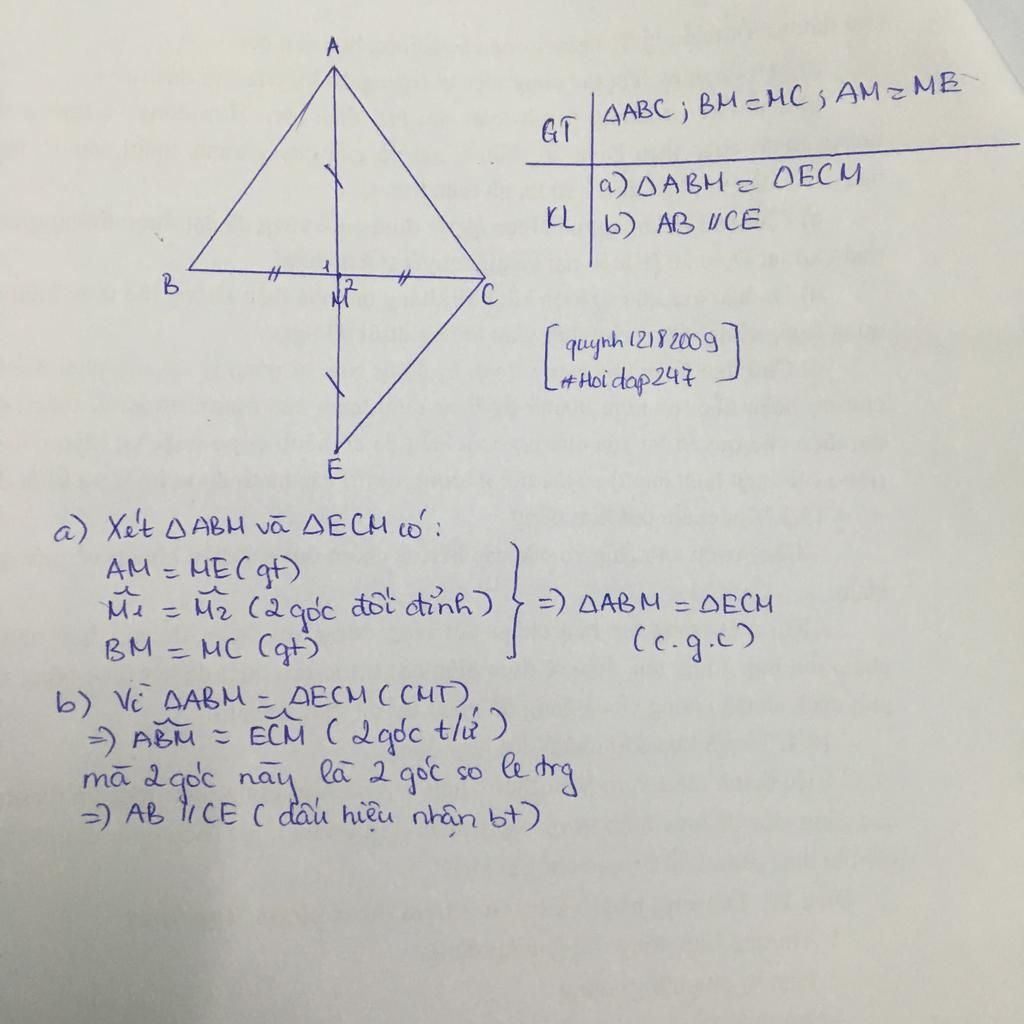 A
GT ΔABC ; BM = MC ; AM = ME
KL a) ΔABM = ΔECM
b) AB // CE
B 1 M 2 C
[quynh12182009
#Hoidap247]
E
a) Xét ΔABM và ΔECM có:
AM = ME (gt)
M̂1 = M̂2 (2 góc đối đỉnh) } => ΔABM = ΔECM
BM = MC (gt) (c.g.c)
b) Vì ΔABM = ΔECM (CMT)
=> ABM̂ = ECM̂ (2 góc t/ứ)
mà 2 góc này là 2 góc so le trg
=> AB // CE (dấu hiệu nhận bt)